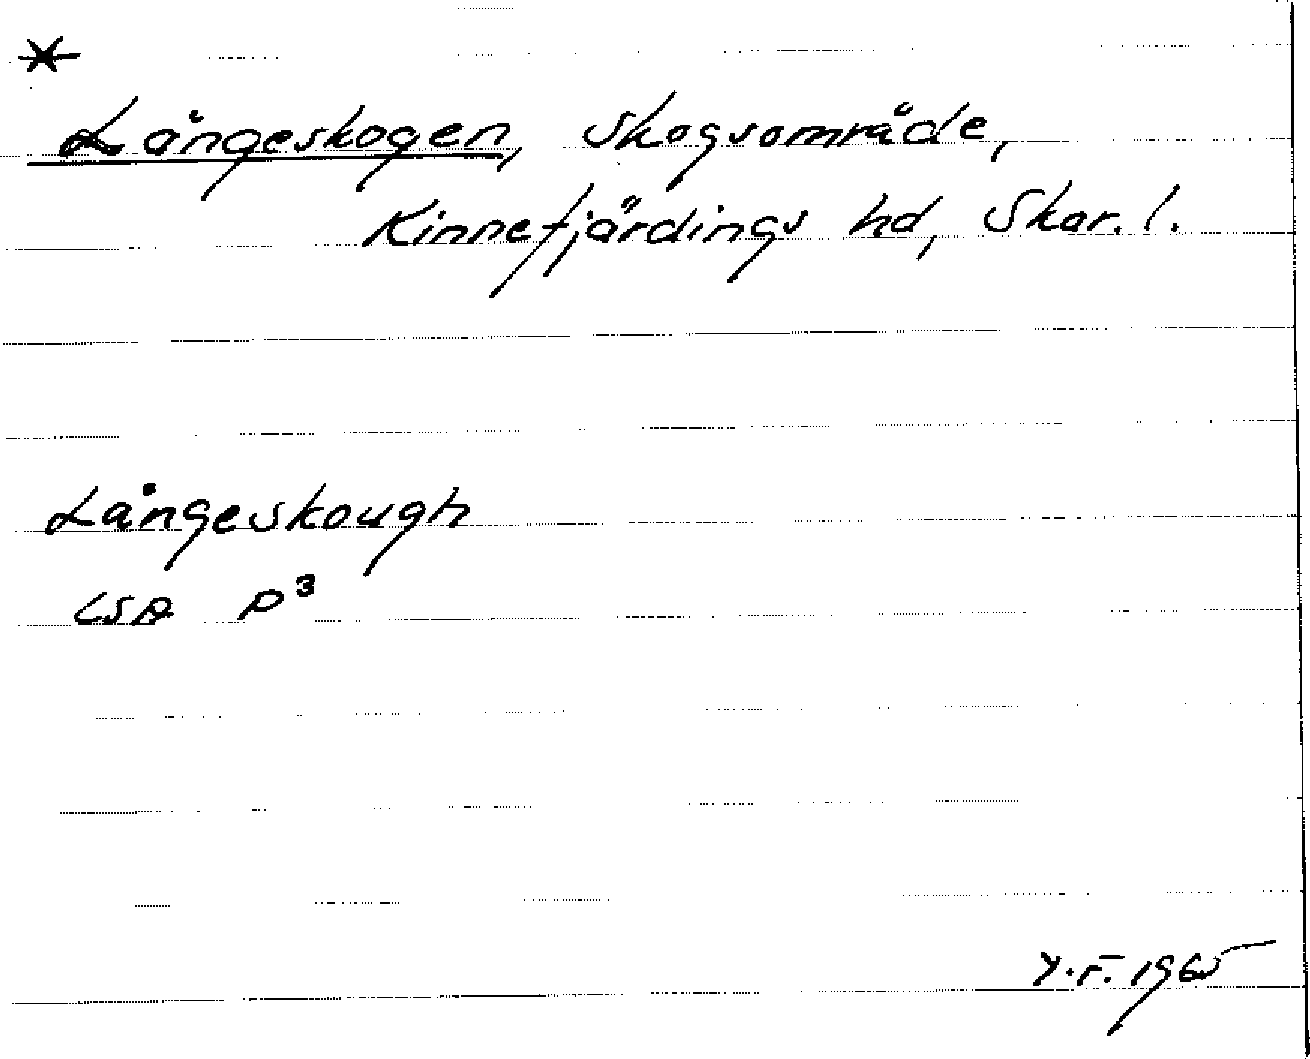 *
Långeskogen, skogsområde,
Kinnefjärdings hd, Skar. l.
Långeskough
LSA P³
Y.F. 1965